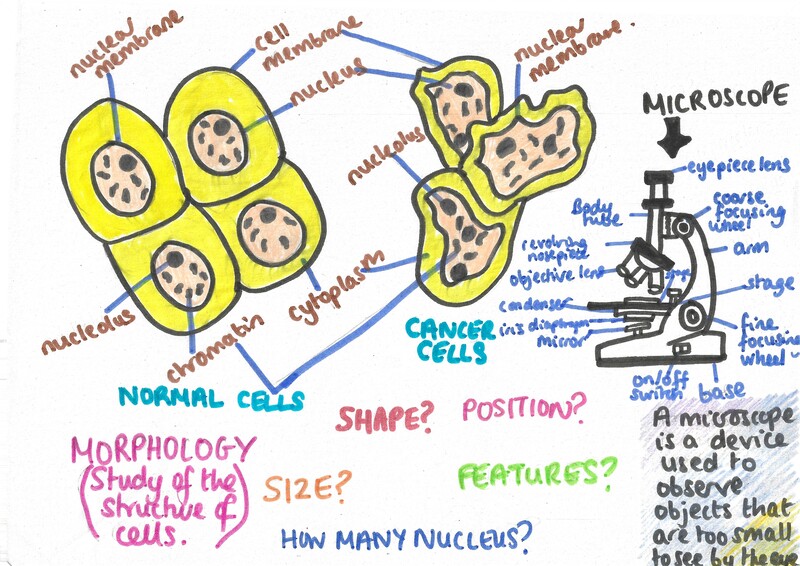 nuclear
membrane
cell
membrane
nucleus
nuclear
membrane.
nucleolus
nucleolus
chromatin
cytoplasm
NORMAL CELLS
CANCER
CELLS
MICROSCOPE
eyepiece lens
Body
tube
coarse
focusing
wheel
revolving
nosepiece
arm
objective lens
stage
stage
condenser
iris diaphragm
mirror
fine
focusing
wheel
on/off
switch
base
SHAPE?
POSITION?
MORPHOLOGY
(Study of the
structure of
cells.)
SIZE?
FEATURES?
HOW MANY NUCLEUS?
A microscope
is a device
used to
observe
objects that
are too small
to see by the eye